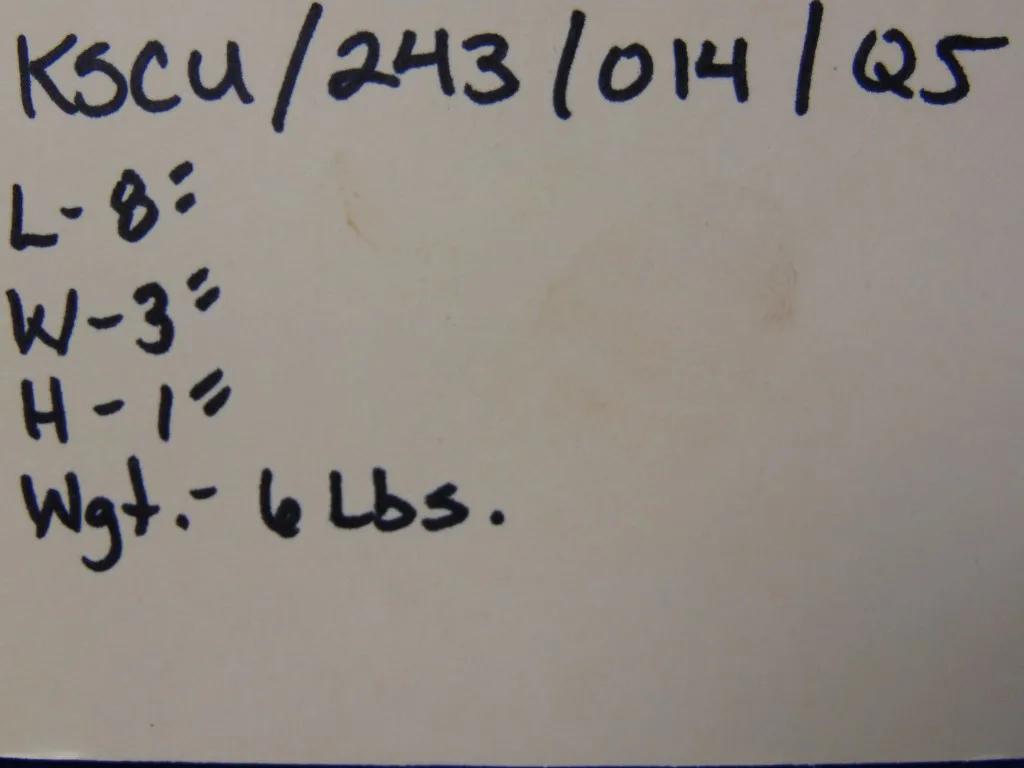 KSCU/243/014/Q5
L-8"
W-3"
H-1"
Wgt.- 6 Lbs.